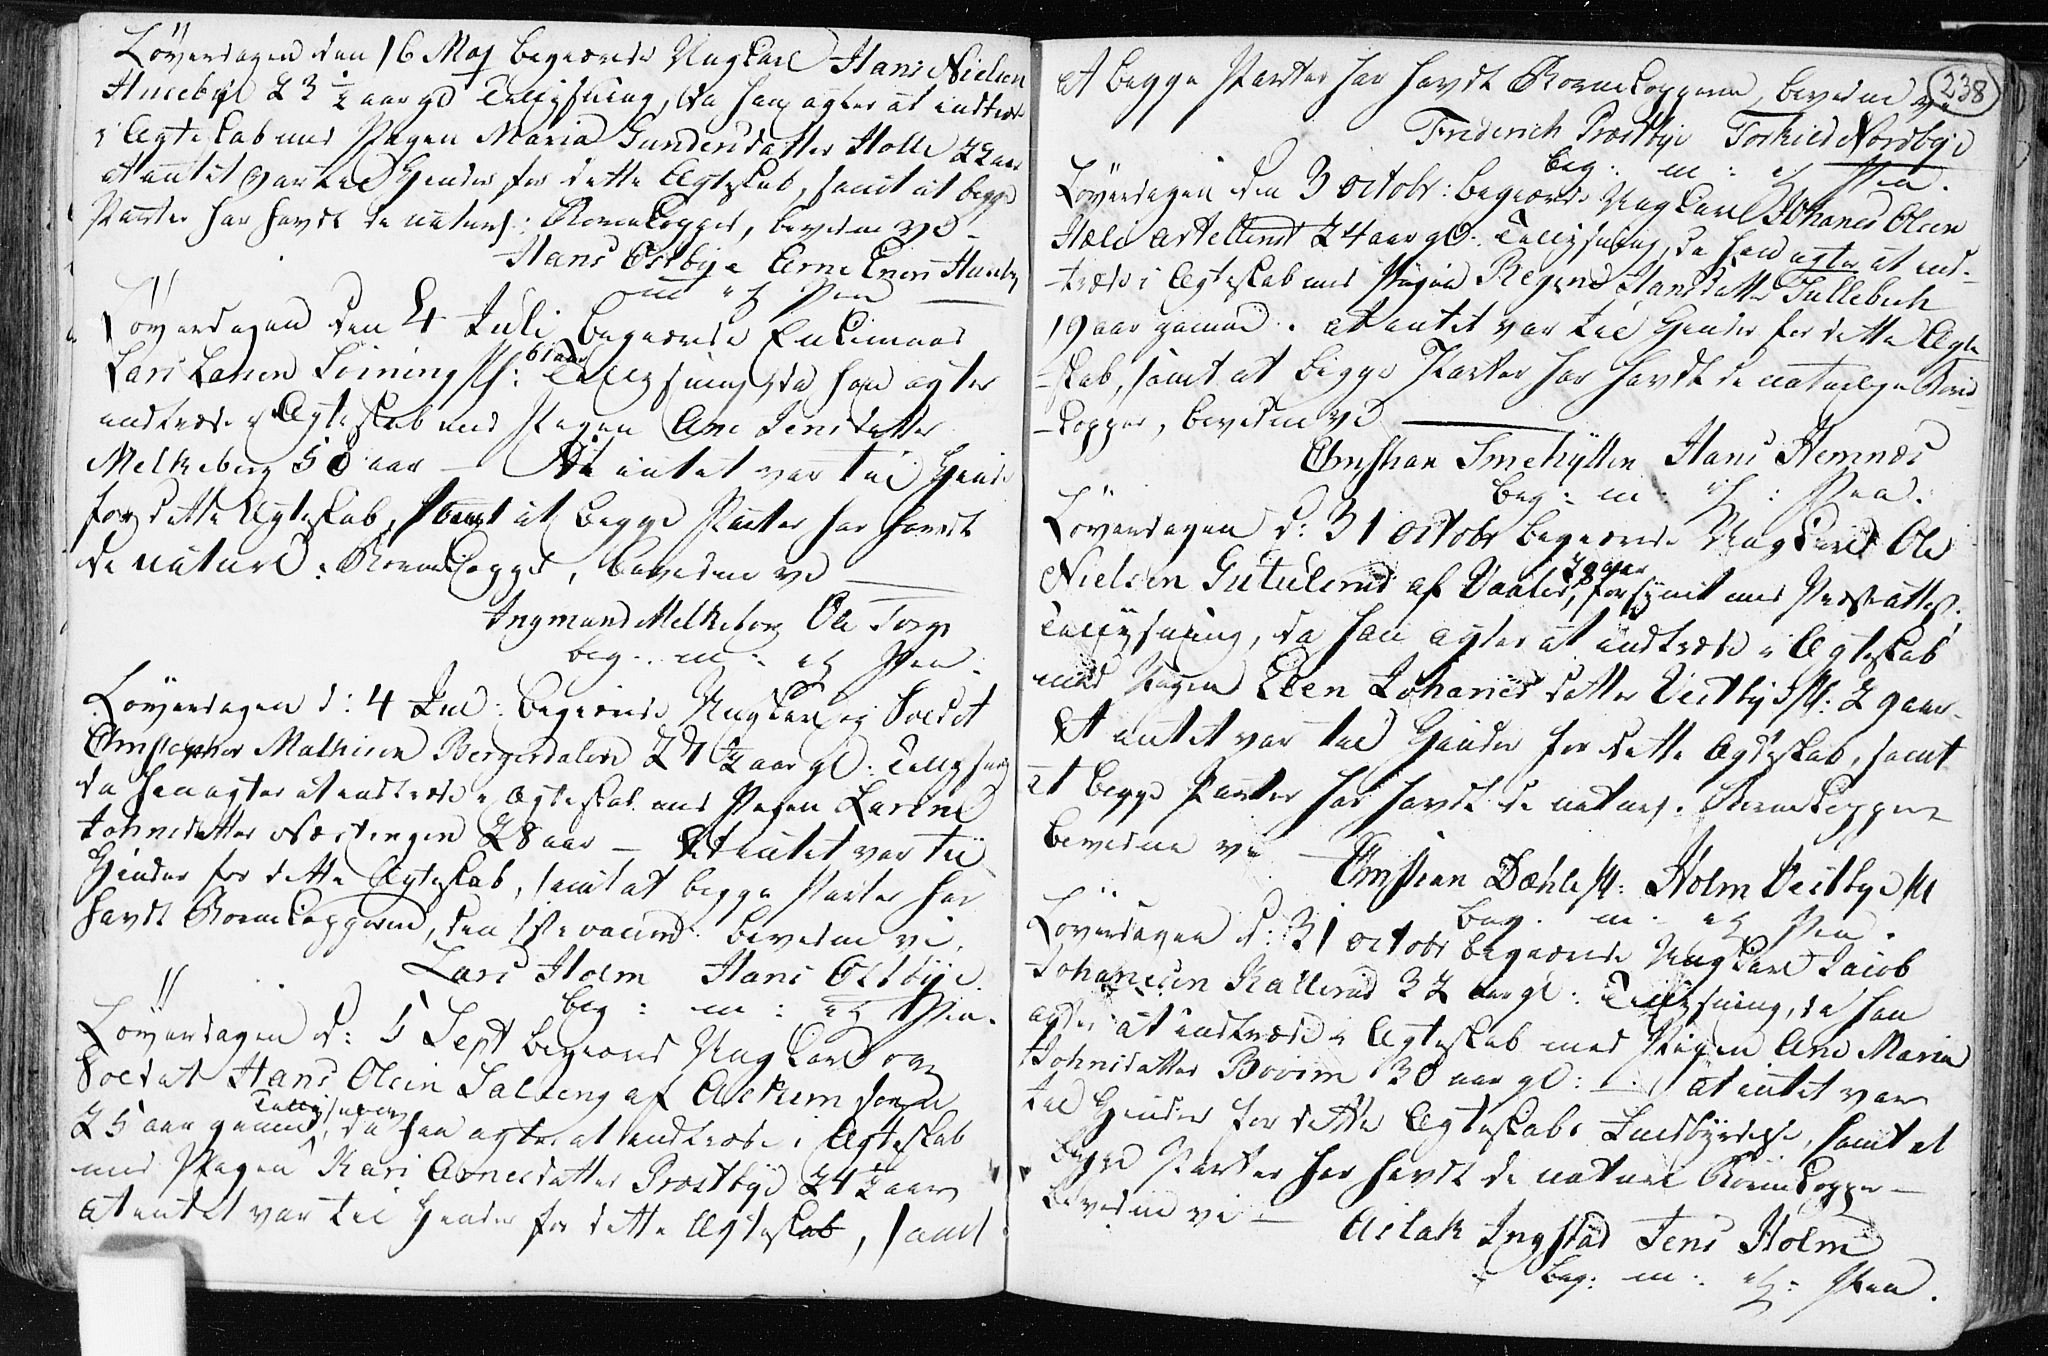 Løverdagen den 16 Maj begærede Ungkarl Hans Nielsen
Husebye 23 1/2 aar gl Tellysning, da han agter at indtræde
i Ægteskab med Pigen Maria Gundersdatter Holle 22 aar
at intet var till Hinder for dette Ægteskab, samt at begge
Parter har havdt de naturl: Kornekopper, bevidne vi
Hans Østbye Arne Huseby
m ph Pen
Løverdagen den 4 Juli begærede Enkemand
Lars Larsen 61 aar Tellysning da han agter
indtræde i Ægteskab med Pigen Ane Jensdatter
Melkeberg 50 aar — At intet var till Hinder
for dette Ægteskab, samt at begge Parter har havdt
de naturl: Kornekopper, bevidne vi
Ingmund Melkeberg Ole Torp
beg: m: ph Pen.
Løverdagen d: 4 Jul: begærede Ungkarl og Soldat
Christopher Mathisen Bergersdalen 27 1/2 aar gl: Tellysning
da han agter at indtræde i Ægteskab med Pigen Larine
Johnsdatter 28 aar — At intet var till
Hinder for dette Ægteskab, samt at begge Parter har
havdt Kornekopperne, bevidne vi.
Lars Holm Hans Østbye.
beg: m: ph Pen.
Løverdagen d: 5 Sept begæred Ungkarl og
Soldat Hans Olsen af Askim
25 aar gammel Tellysning, da han agter at indtræde i Ægteskab
med Pigen Kari Arnesdatter Præstbye 24 aar
at intet var till Hinder for dette Ægteskab, samt
238
at begge Parter har havdt Kornekopperne, bevidne vi
Friderich Præstbye Torkild Nordbye
beg: m: ph Pen.
Løverdagen den 3 Octobr: begærede Ungkarl Johanes Olsen
24 aar gl: Tellysning, da han agter at ind-
træde i Ægteskab med Pigen Regine Hansdatter
19 aar gammel. at intet var till Hinder for dette Ægte
-skab, samt at begge Parter har havdt de naturlige Korne
-kopper, bevidne vi
Christian Smehytten Hans Hemnæs
beg: m: ph: Pen.
Løverdagen d: 31 Octobr begærede Ungkarl Ole
Nielsen af Vaaler, forsynet med Præsteattest,
Tellysning, da han agter at indtræde i Ægteskab
med Pigen Elen Johanesdatter Vestby 29 aar.
At intet var till Hinder for dette Ægteskab, samt
at begge Parter har havdt de naturl. Kornekopper
bevidne vi — Christian Dæhle Holm Vestbye
beg. m. ph Pen.
Løverdagen d: 31 Octobr begærede Ungkarl Jacob
Johanesen Kallerud 32 aar gl: Tellysning, da han
agter at indtræde i Ægteskab med Pigen Ane Maria
Johnsdatter Bovim 30 aar gl: — at intet var
till Hinder for dette Ægteskabs Fuldbyrdelse, samt at
begge Parter har havdt de naturl Kornekopper —
bevidne vi — Aslak Ingstad Jens Holm
beg: m: ph: Pen.